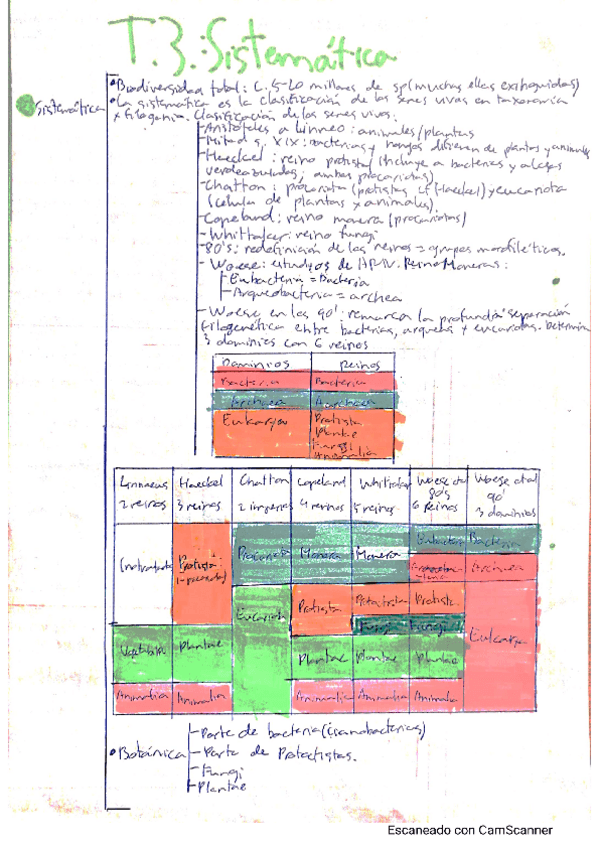 T.3.: Sistemática
Sistemática
• Biodiversidad total: C. 5-20 millones de sp (muchas ellas extinguidas)
• La sistemática es la clasificación de los seres vivos en taxonomía
y filogenia. Clasificación de los seres vivos:
- Aristóteles a Linneo: animales/plantas
- Mitad s. XIX: bacterias y hongos difieren de plantas y animales
- Haeckel: reino protista (incluye a bacterias y algas
verdeazuladas; ambas procariotas)
- Chatton: procariota (protistas cf Haeckel) y eucariota
(célula de plantas y animales)
- Copeland: reino monera (procariotas)
- Whittaker: reino fungi
- 80's: redefinición de los reinos = grupos monofiléticos.
- Woese: estudios de ARN. Reino Moneras:
Eubacteria = Bacteria
Arqueobacteria = archea
- Woese en los 90': remarca la profunda separación
filogenética entre bacterias, arqueas y eucariotas. Determina
3 dominios con 6 reinos
Dominios Reinos
Bacteria Bacteria
Archaea Archaea
Eukarya Protista
Plantae
Fungi
Animalia
Linnaeus Haeckel Chatton Copeland Whittaker Woese et al Woese et al
80's 90'
2 reinos 3 reinos 2 imperios 4 reinos 5 reinos 6 reinos 3 dominios
Procariota Monera Monera Bacteria
Protista Archaea
Eucariota Protista Protoctista Protista
Fungi Fungi Eukarya
Vegetabilia Plantae Plantae Plantae Plantae
Animalia Animalia Animalia Animalia Animalia
• Botánica
- Parte de bacteria (cianobacterias)
- Parte de Protoctistas.
- Fungi
- Plantae
Escaneado con CamScanner